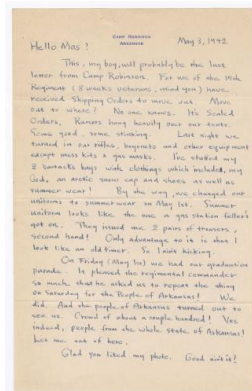 CAMP ROBINSON
ARKANSAS
May 3, 1942
Hello Mas!
This, my boy, will probably be the last
letter from Camp Robinson. For we of the
Regiment (8 weeks veterans, mind you) have
received Shipping Orders to move out. Move
out to where? No one knows. It's Sealed
Orders. Rumors hang heavily over our tents.
Some good, some stinking. Last night we
turned in our rifles, bayonets and other equipment
except mess kits & gas masks. I've stuffed my
2 barracks bags with clothing which included, my
God, an arctic snow cap and shoes as well as
summer wear! By the way, we changed our
uniforms to summer wear on May 1st. Summer
uniform looks like the one a gas station feller's
got on. They issued me 2 pairs of trousers,
second hand! Only advantage to it is that I
look like an old timer. So I ain't kicking.
On Friday (May 1st) we had our graduation
parade. It pleased the regimental commander
so much that he asked us to repeat the thing
on Saturday for the People of Arkansas! We
did. And the people of Arkansas turned out to
see us. Crowd of about a couple hundred! Yes
indeed, people from the whole state of Arkansas!
Let me out of here.
Glad you liked my photo. Good ain't it!